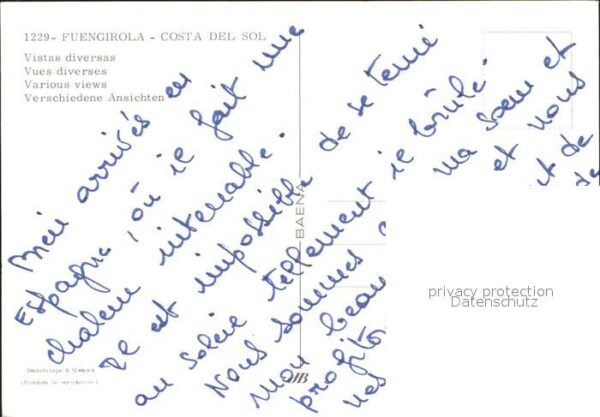 1229- FUENGIROLA - COSTA DEL SOL
Vistas diversas
Vues diverses
Various views
Verschiedene Ansichten
BAENA
Bien arrivés en
Espagne, où il fait une
chaleur intenable.
Il est impossible de se tenir
au soleil tellement il brûle.
Nous sommes ma soeur et
mon beau et nous
profito t de
nes de
privacy protection
Datenschutz
(Prohibida la reproducción)